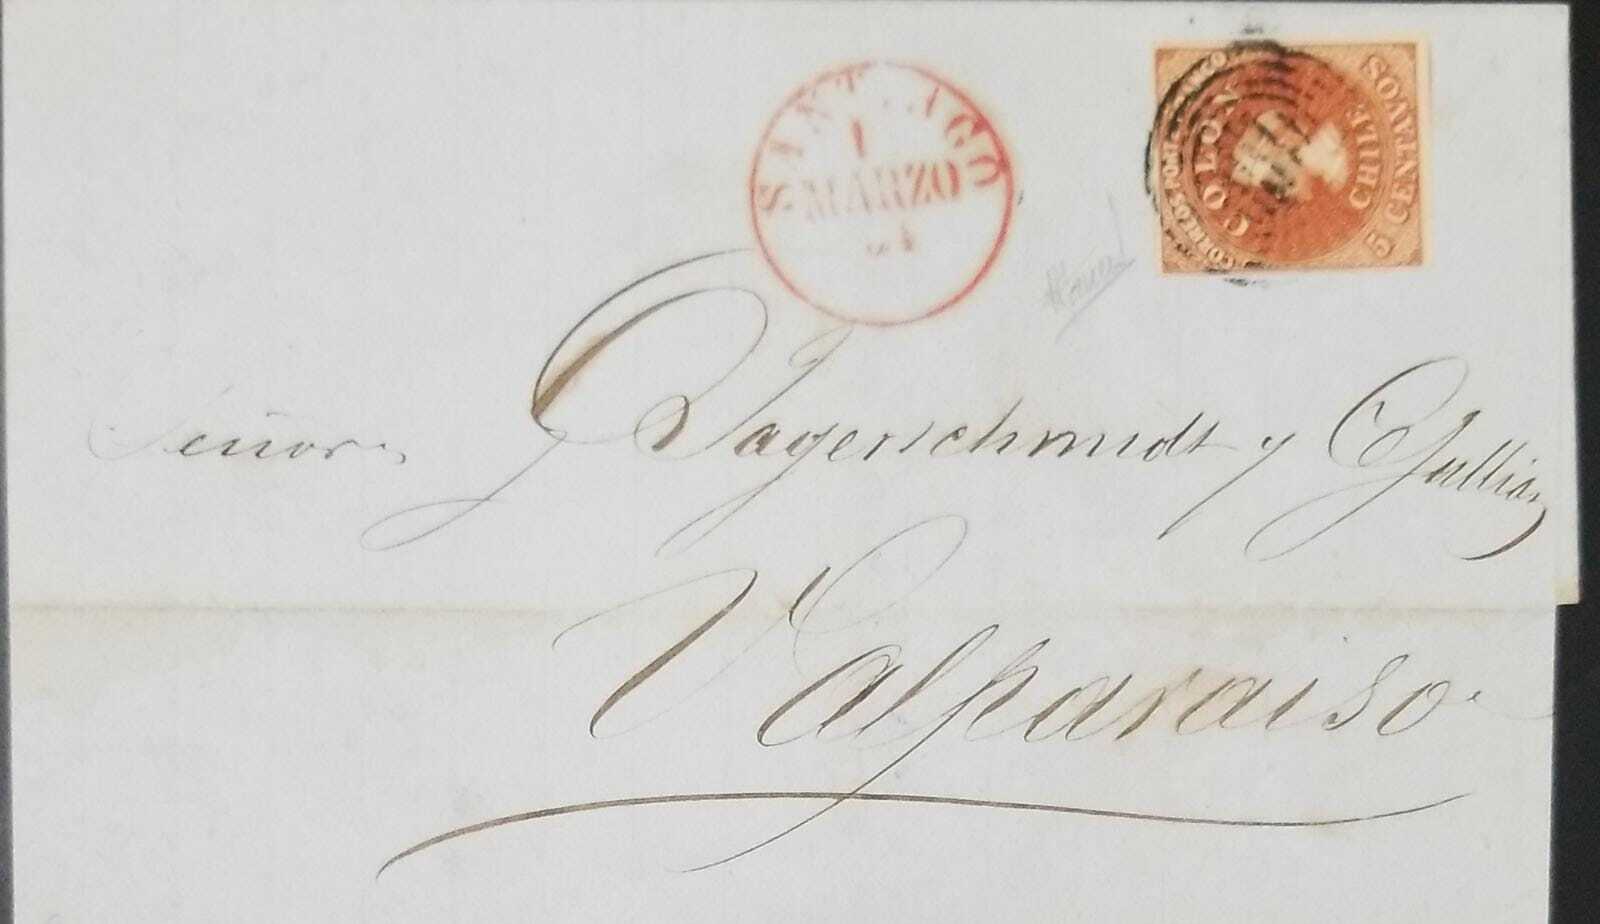 SANTIAGO
1
MARZO
54
CORREOS PORTE FRANCO
COLON
CHILE
5 CENTAVOS
Señores
Jagerschmidt y Jullian
Valparaiso